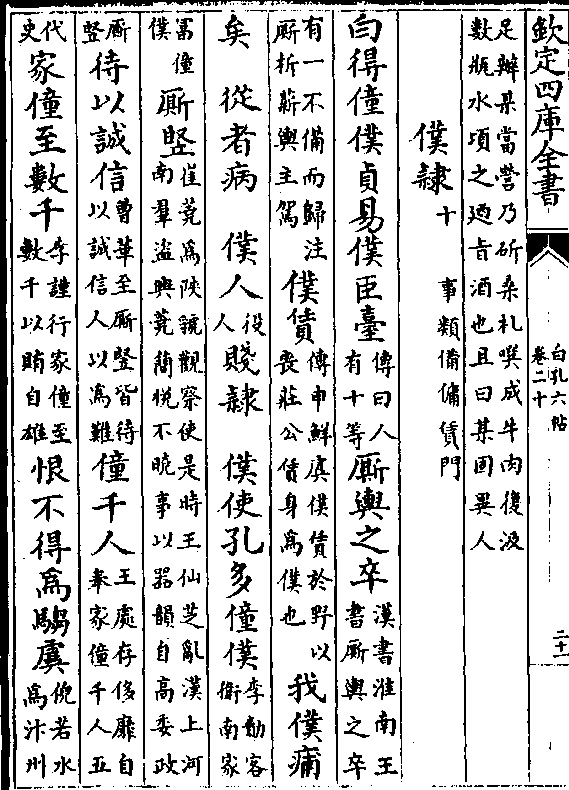 欽定四庫全書
白孔六帖
卷二十
二十一
足辦果當營乃斫桑札噀成牛肉復汲
數瓶水頃之迺旨酒也且曰某固異人
僕隸十 事類備傭賃門
白得童僕貞易僕臣臺傳曰人有十等廝輿之卒漢書淮南王書廝輿之卒
有一不備而歸注廝析薪輿主駕僕賃傳申鮮虞僕賃於野以喪莊公賃身爲僕也我僕痡
矣 從者病 僕人役人賤隸 僕使孔多僮僕李勣客衞南家
富僮僕廝豎崔蕘爲陜虢觀察使是時王仙芝亂漢上河南羣盜興蕘簡悅不曉事以器韻自高委政
廝豎待以誠信曹華至廝豎皆待以誠信人以爲難僮千人王處存侈靡自奉家僮千人五
代史家僮至數千李謹行家僮至數千以賄自雄恨不得爲騶虞倪若水爲汴州